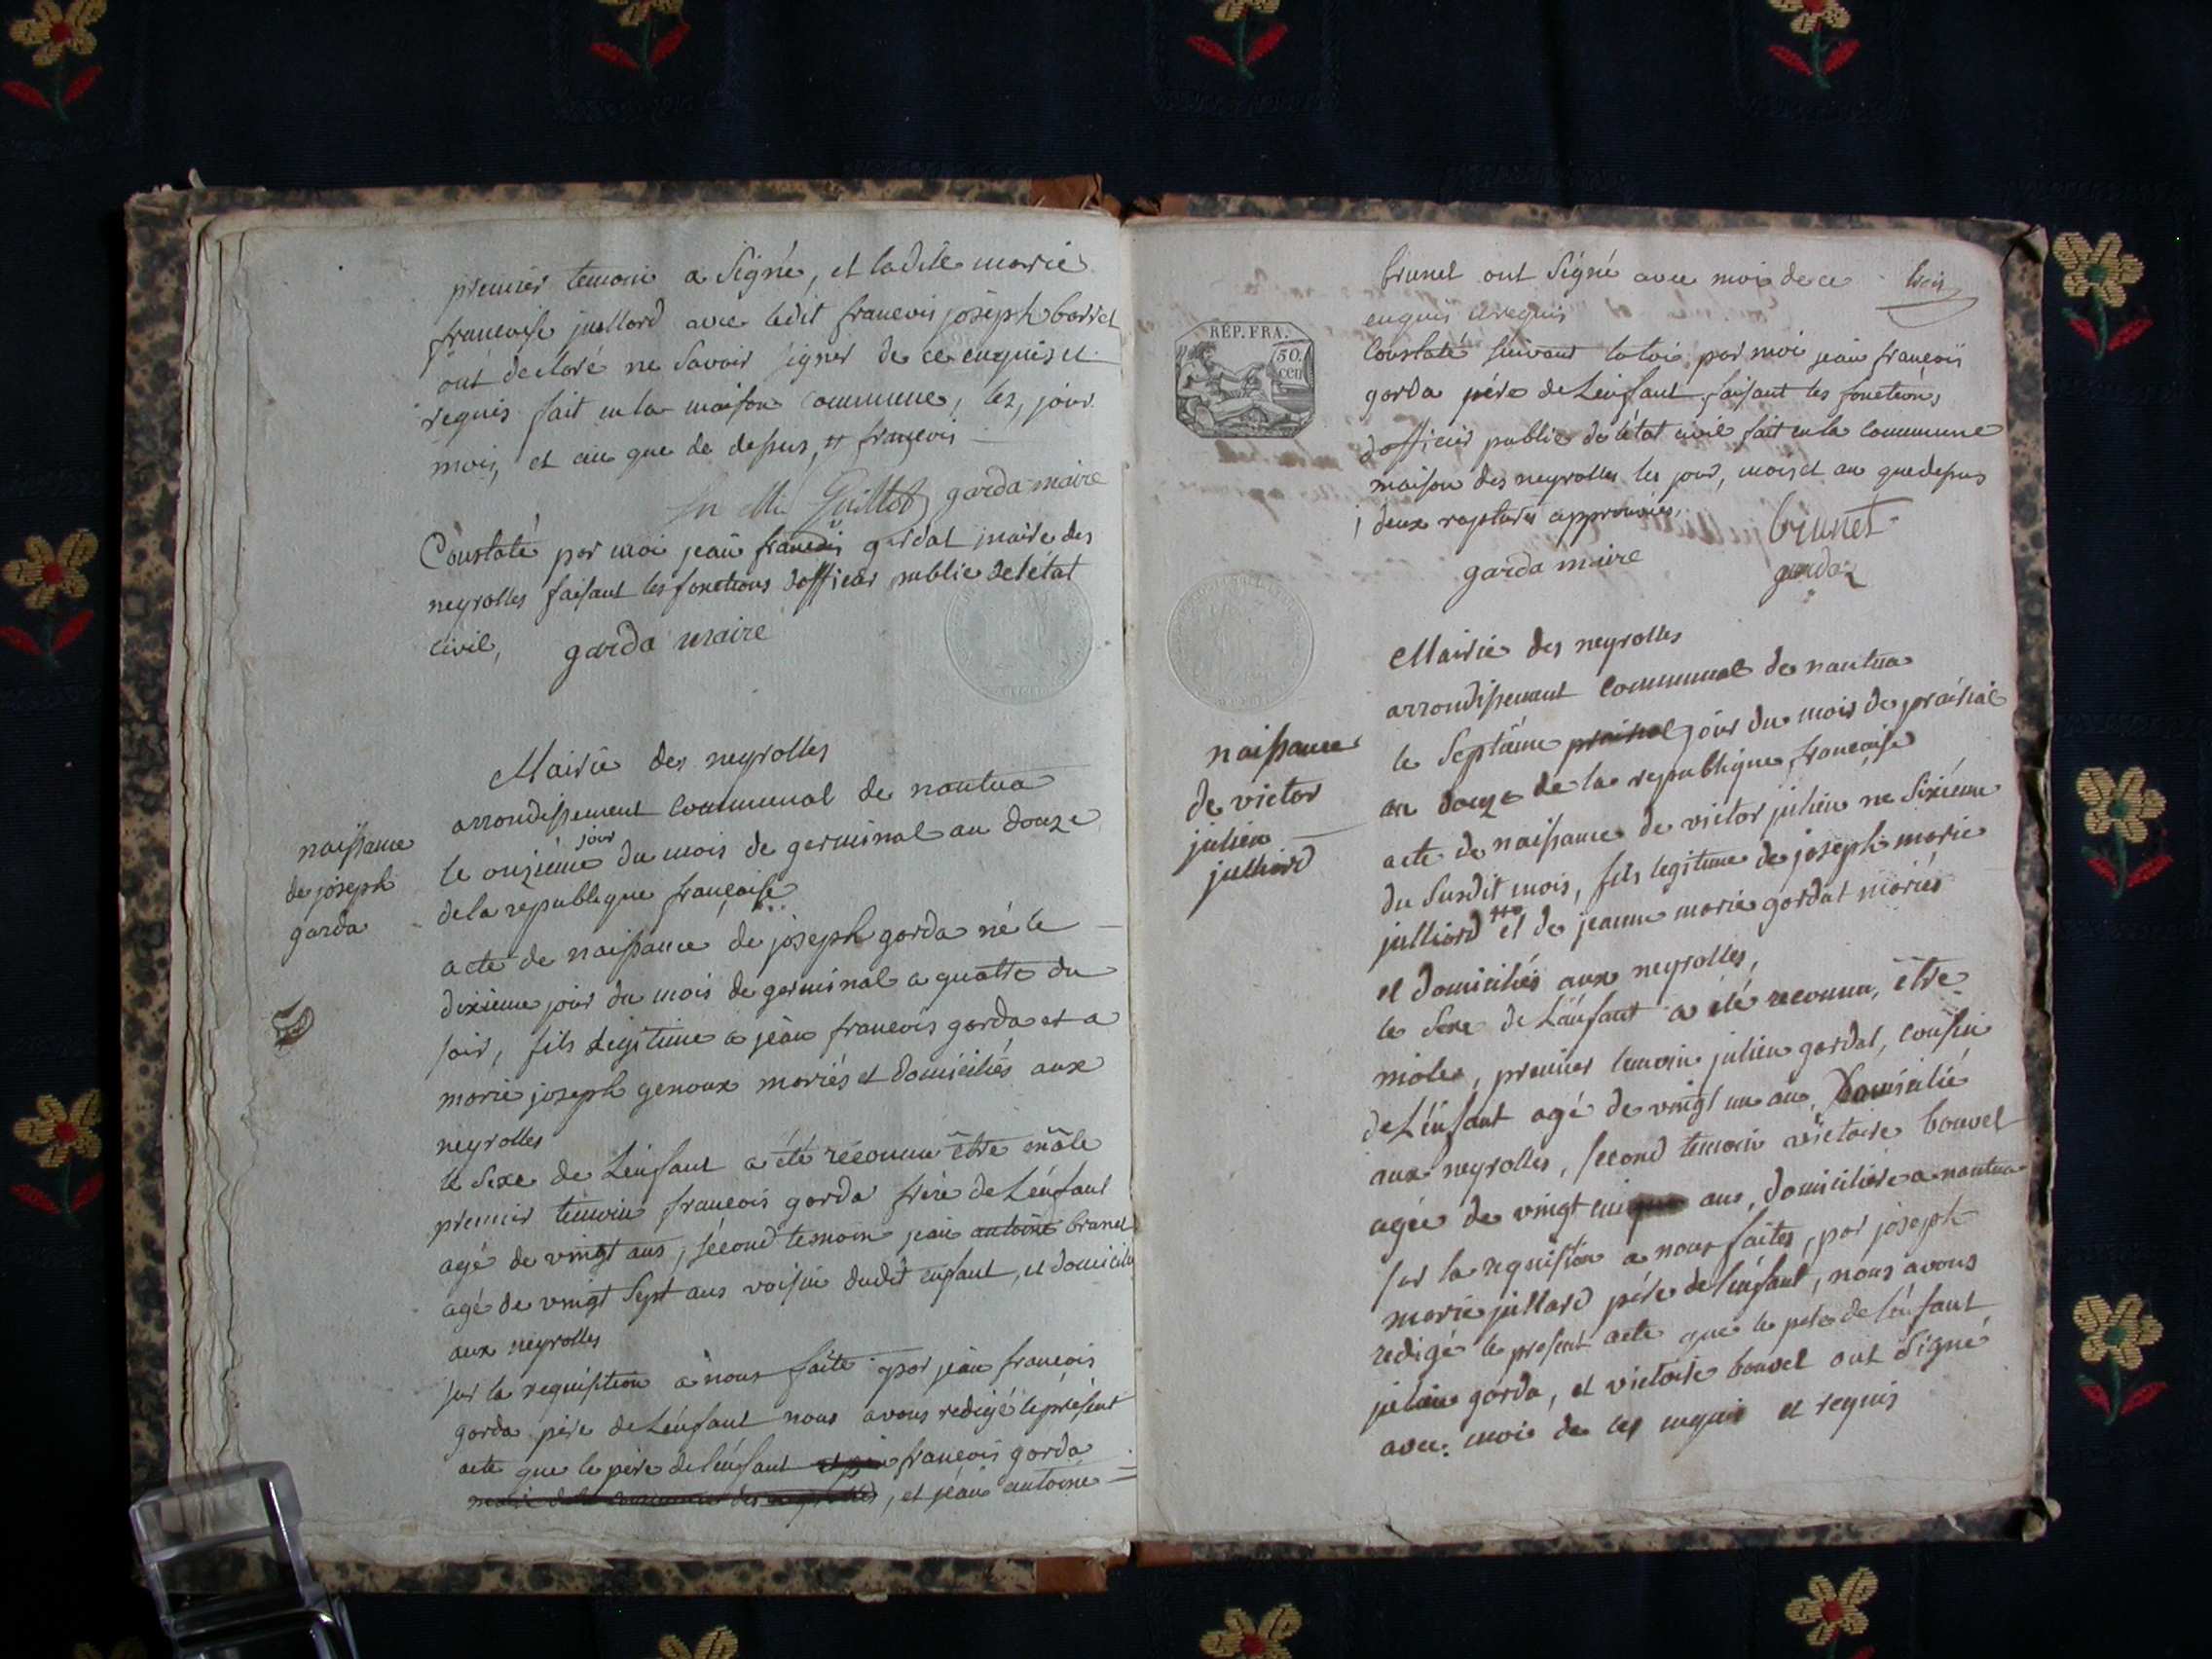 premier temoin a signé, et ladite marie
francoise juillard avec ledit francois joseph borrel
ont declaré ne savoir signer de ce enquis et
requis fait en la maison commune, les, jour
mois, et an que de dessus, françois
Guillot garda maire
Constaté par moi jean francois gardat maire des
neyrolles faisant les fonctions dofficier public de létat
civil, garda maire
Mairie des neyrolles
arrondissement communal de nantua
naissance
de joseph
garda
le onzieme jour du mois de germinal an douze
de la republique française
acte de naissance de joseph garda né le
dixieme jour du mois de germinal a quatre du
soir, fils legitime a jean francois garda et a
marie joseph genoux mariés et domiciliés aux
neyrolles
le sexe de Lenfant a été reconnu être mâle
premier temoin francois garda frere de Lenfant
agé de vingt ans, second temoin jean antoine brunet
agé de vingt sept ans voisin dudit enfant, et domicilié
aux neyrolles
sur la requisition a nous faite par jean francois
garda pére de Lenfant nous avons redigé le présent
acte que le pere de lénfant francois garda
, et jean antoine
brunet ont signé avec moi de ce
enquis et requis
trois
RÉP. FRA.
50
cen
Constaté suivant la loi par moi jean françois
garda pére de Lenfant faisant les fonctions
dofficier public de létat civil fait en la commune
maison des neyrolles les jour, mois et an que dessus
deux raptures approuvées,
brunet
garda maire
garda
Mairie des neyrolles
arrondissement communal de nantua
naissance
de victor
julien
julliard
le septieme prairial jour du mois de prairial
an douze de la republique française
acte de naissance de victor julien ne sixieme
du susdit mois, fils legitime de joseph marie
julliard et de jeanne marie gardat mariés
et domiciliés aux neyrolles,
le sexe de Lénfant a été reconnu, être
mâle, premier temoin julien gardat, cousin
de Lénfant agé de vingt un an, domicilié
aux neyrolles, second temoin victoire bouvel
agée de vingt cinq ans, domiciliée a nantua
sur la requisition a nous faites, par joseph
marie jullard pére de lénfant, nous avons
redigé le present acte que le pere de lénfant
julien garda, et victoire bouvel ont signé
avec moi de ces enquis et requis